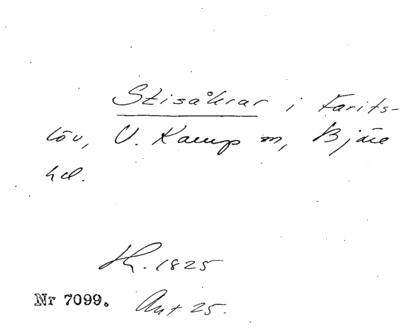 Stisåkrar i Farits-
löv, V. Karup sn, Bjäre
hd.
Sk. 1825
Nr 7099. Akt 25.